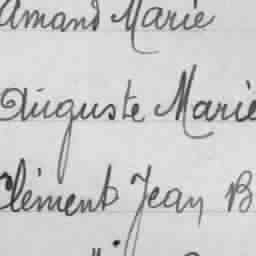 Amand Marie
Auguste Marie
Clément Jean B